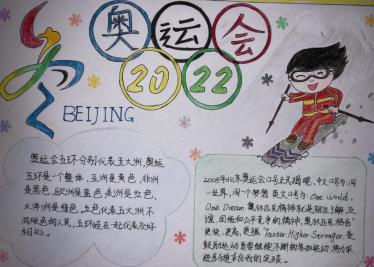 奥运会
2022
BEIJING
奥运会五环分别代表五大洲,奥运
五环是一个整体,亚洲是黄色,非洲
是黑色,欧洲是蓝色,美洲是红色,
大洋洲是绿色,五色代表五大洲不
同肤色的人民,五环连在一起代表友好
相处。
2008年北京奥运会口号正式揭晓,中文口号为"同
一世界,同一个梦想 英文口号为:One World,
One Dream 奥林匹克精神就是相互了解,友
谊,团结和公平竞争的精神,奥林匹克格言"
更快,更高,更强 "Faster, Higher Stronger